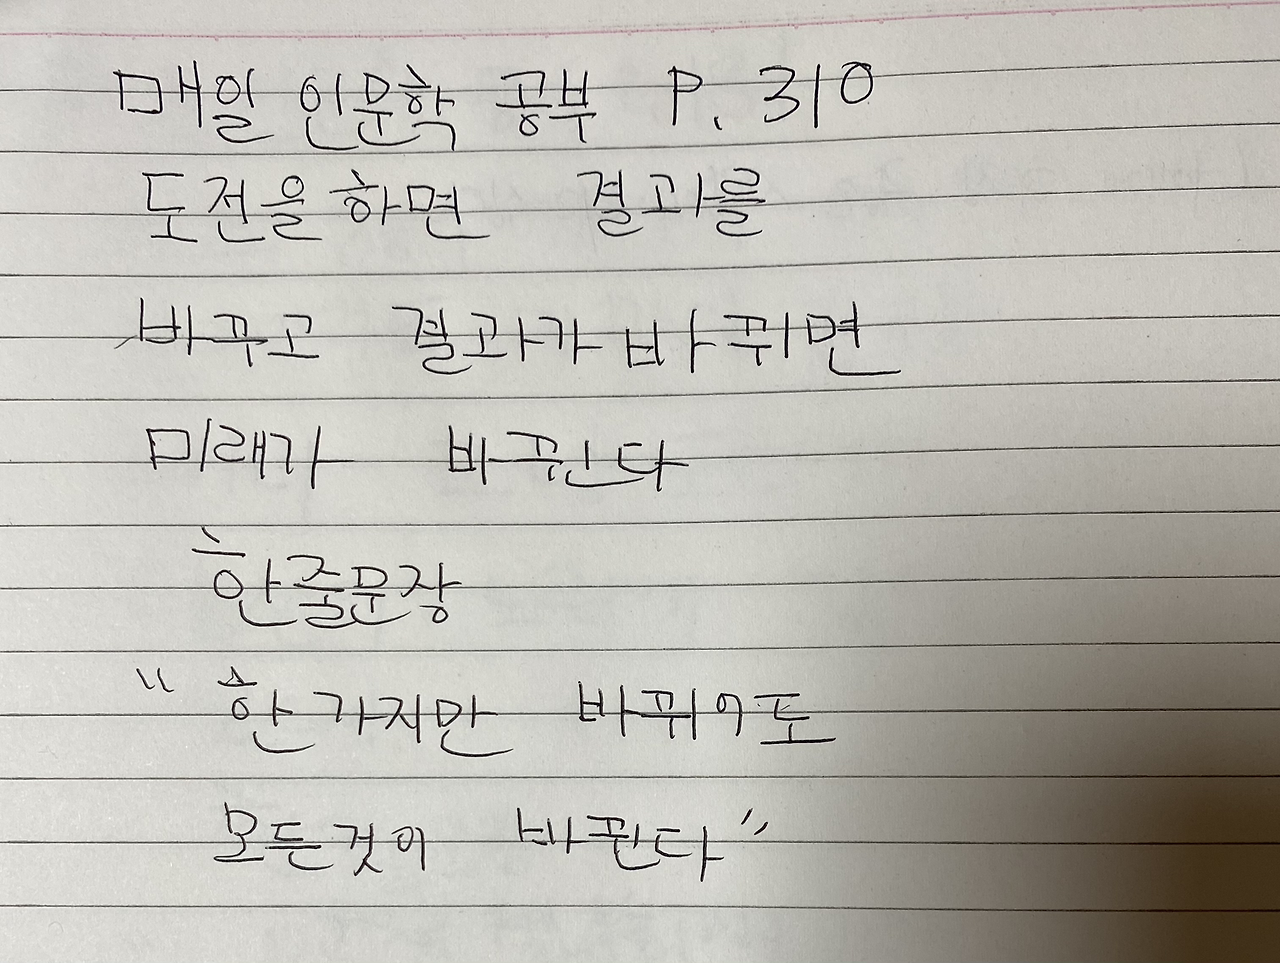 매일 인문학 공부 P. 310
도전을 하면 결과를
바꾸고 결과가 바뀌면
미래가 바뀐다
한줄문장
"한 가지만 바뀌어도
모든것이 바뀐다"